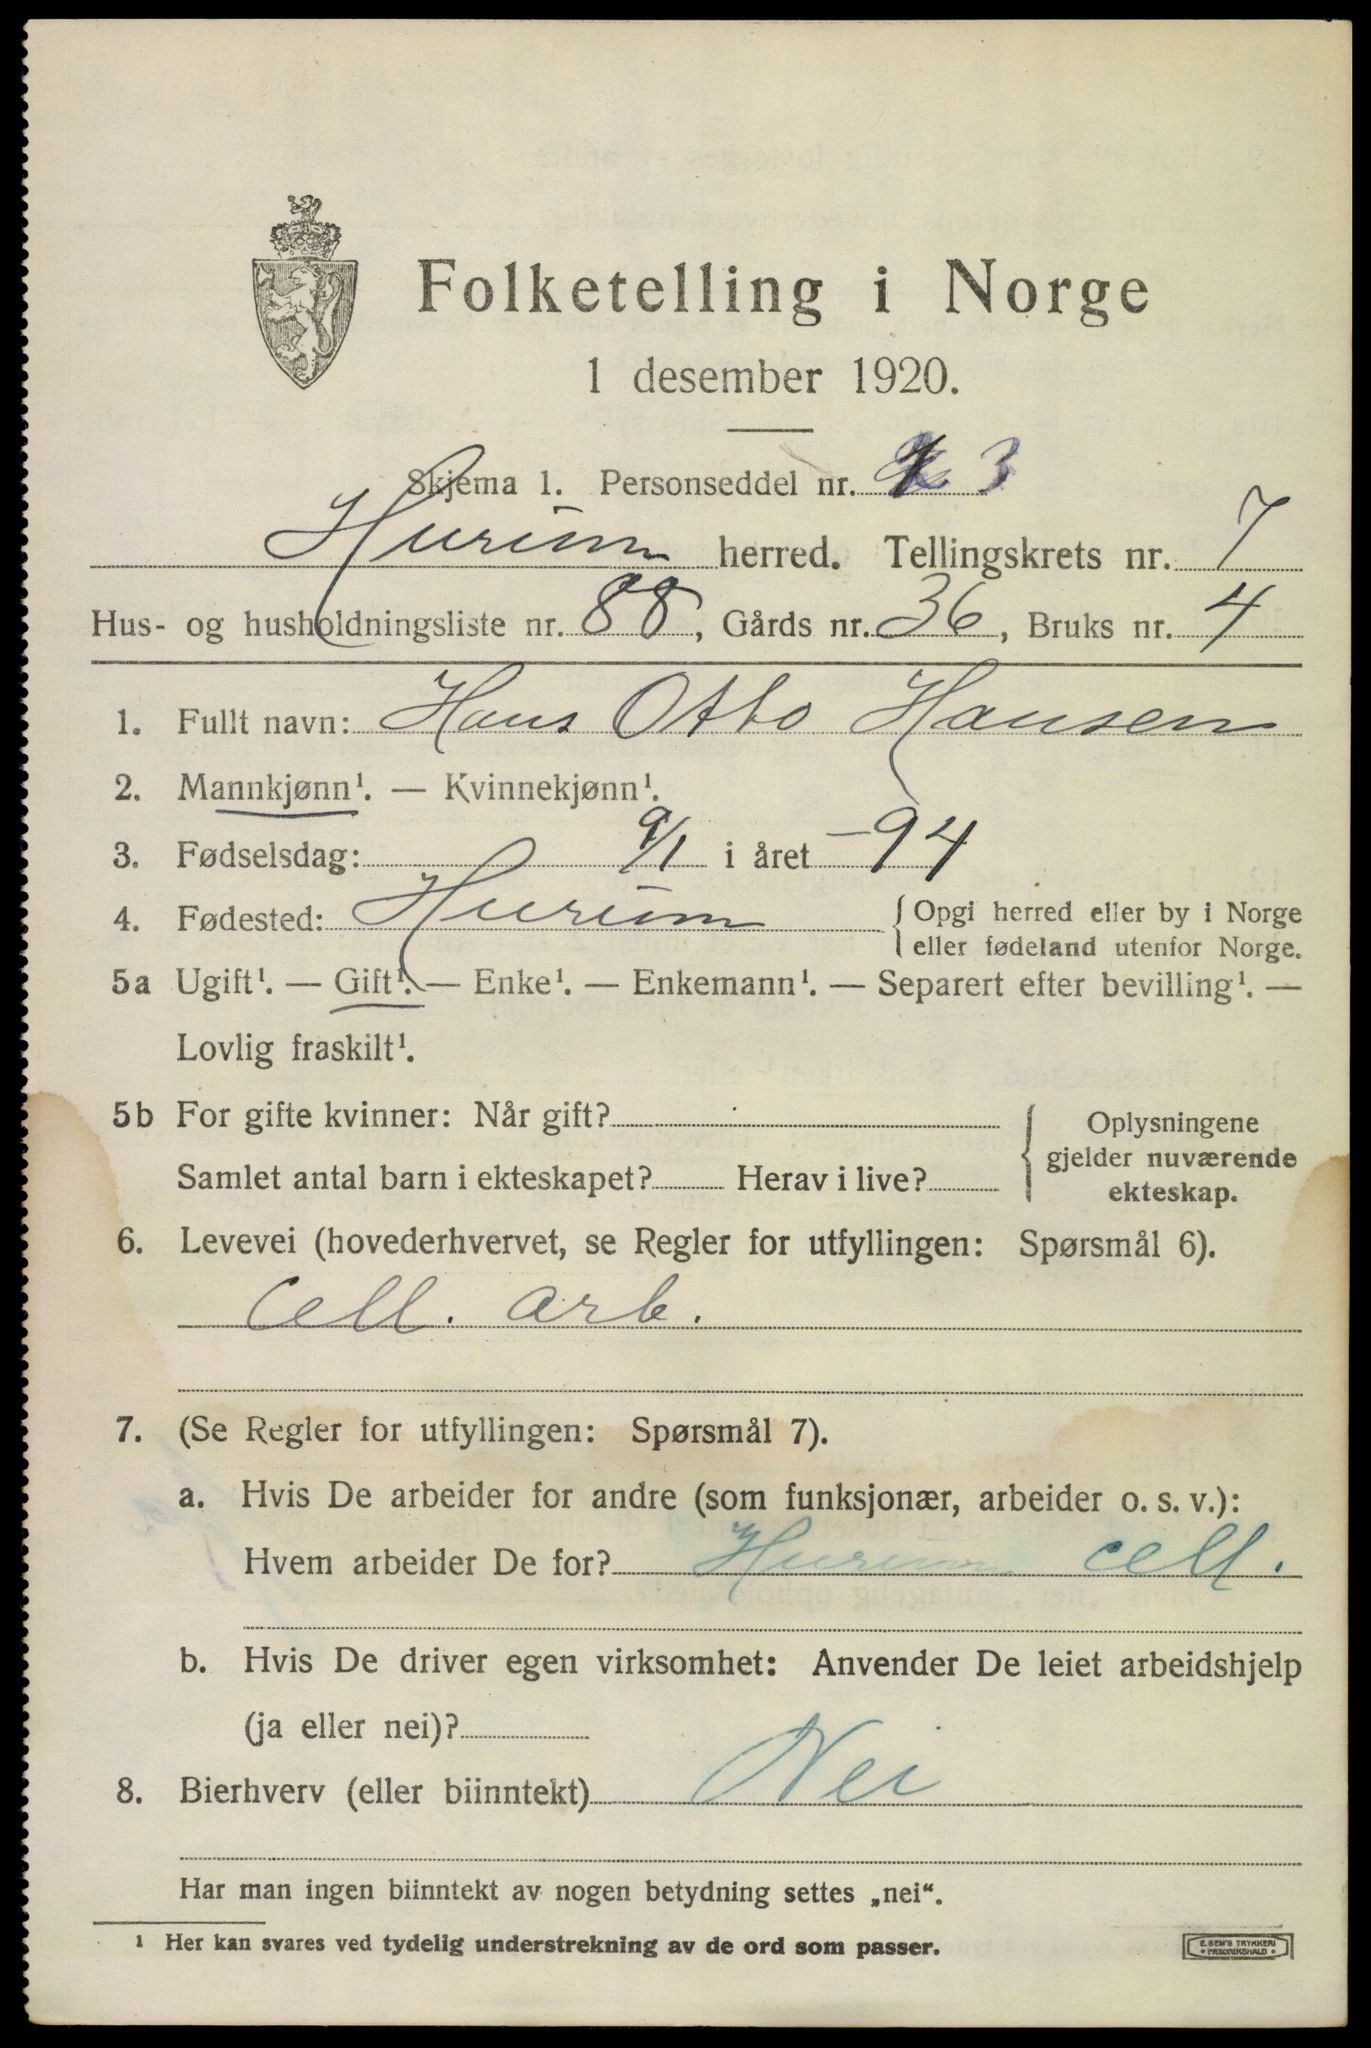 Folketelling i Norge
1 desember 1920.
Skjema 1. Personseddel nr. 3
Hurum herred. Tellingskrets nr. 7
Hus- og husholdningsliste nr. 88, Gårds nr. 36, Bruks nr. 4
1. Fullt navn: Hans Otto Hansen
2. Mannkjønn¹. — Kvinnekjønn¹.
3. Fødselsdag: 9/1 i året -94
4. Fødested: Hurum { Opgi herred eller by i Norge
eller fødeland utenfor Norge.
5a Ugift¹. — Gift¹. — Enke¹. — Enkemann¹. — Separert efter bevilling¹. —
Lovlig fraskilt¹.
5b For gifte kvinner: Når gift? { Oplysningene
gjelder nuværende
ekteskap.
Samlet antal barn i ekteskapet? Herav i live?
6. Levevei (hovederhvervet, se Regler for utfyllingen: Spørsmål 6).
Cell. arb.
7. (Se Regler for utfyllingen: Spørsmål 7).
a. Hvis De arbeider for andre (som funksjonær, arbeider o. s. v.):
Hvem arbeider De for? Hurum cell.
b. Hvis De driver egen virksomhet: Anvender De leiet arbeidshjelp
(ja eller nei)?
8. Bierhverv (eller biinntekt) Nei
Har man ingen biinntekt av nogen betydning settes „nei“.
¹ Her kan svares ved tydelig understrekning av de ord som passer.
E. SEM'S TRYKKERI
• FREDRIKSHALD •